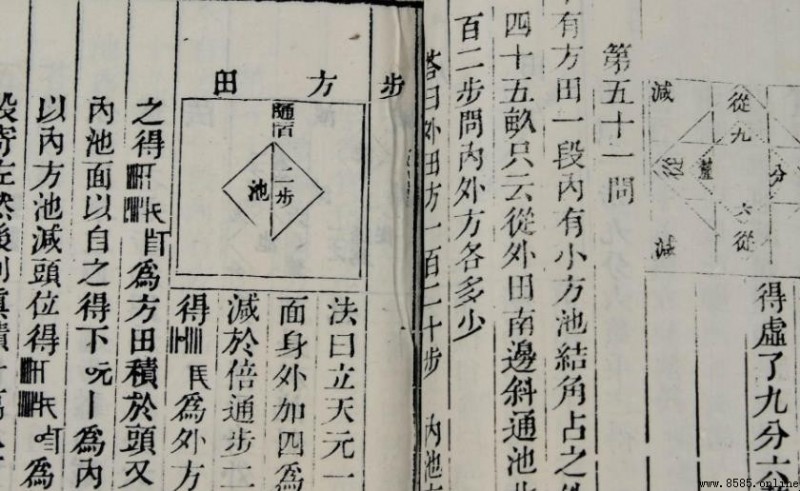 減 從 九 分 六 從 減
得虛了九分六
第五十一問
有方田一段內有小方池結角占之外
四十五畝只云從外田南邊斜通池
百二步問內外方各多少
答曰外田方一百二十步 內池
步 方 田
二步
池
法曰立天元一
面身外加四為
減於倍通步二
得 為外方
之得 為方田積於頭又
內池面以自之得下 為內
以內方池減頭位得 為
段寄左然後列眞積
www.8585.online